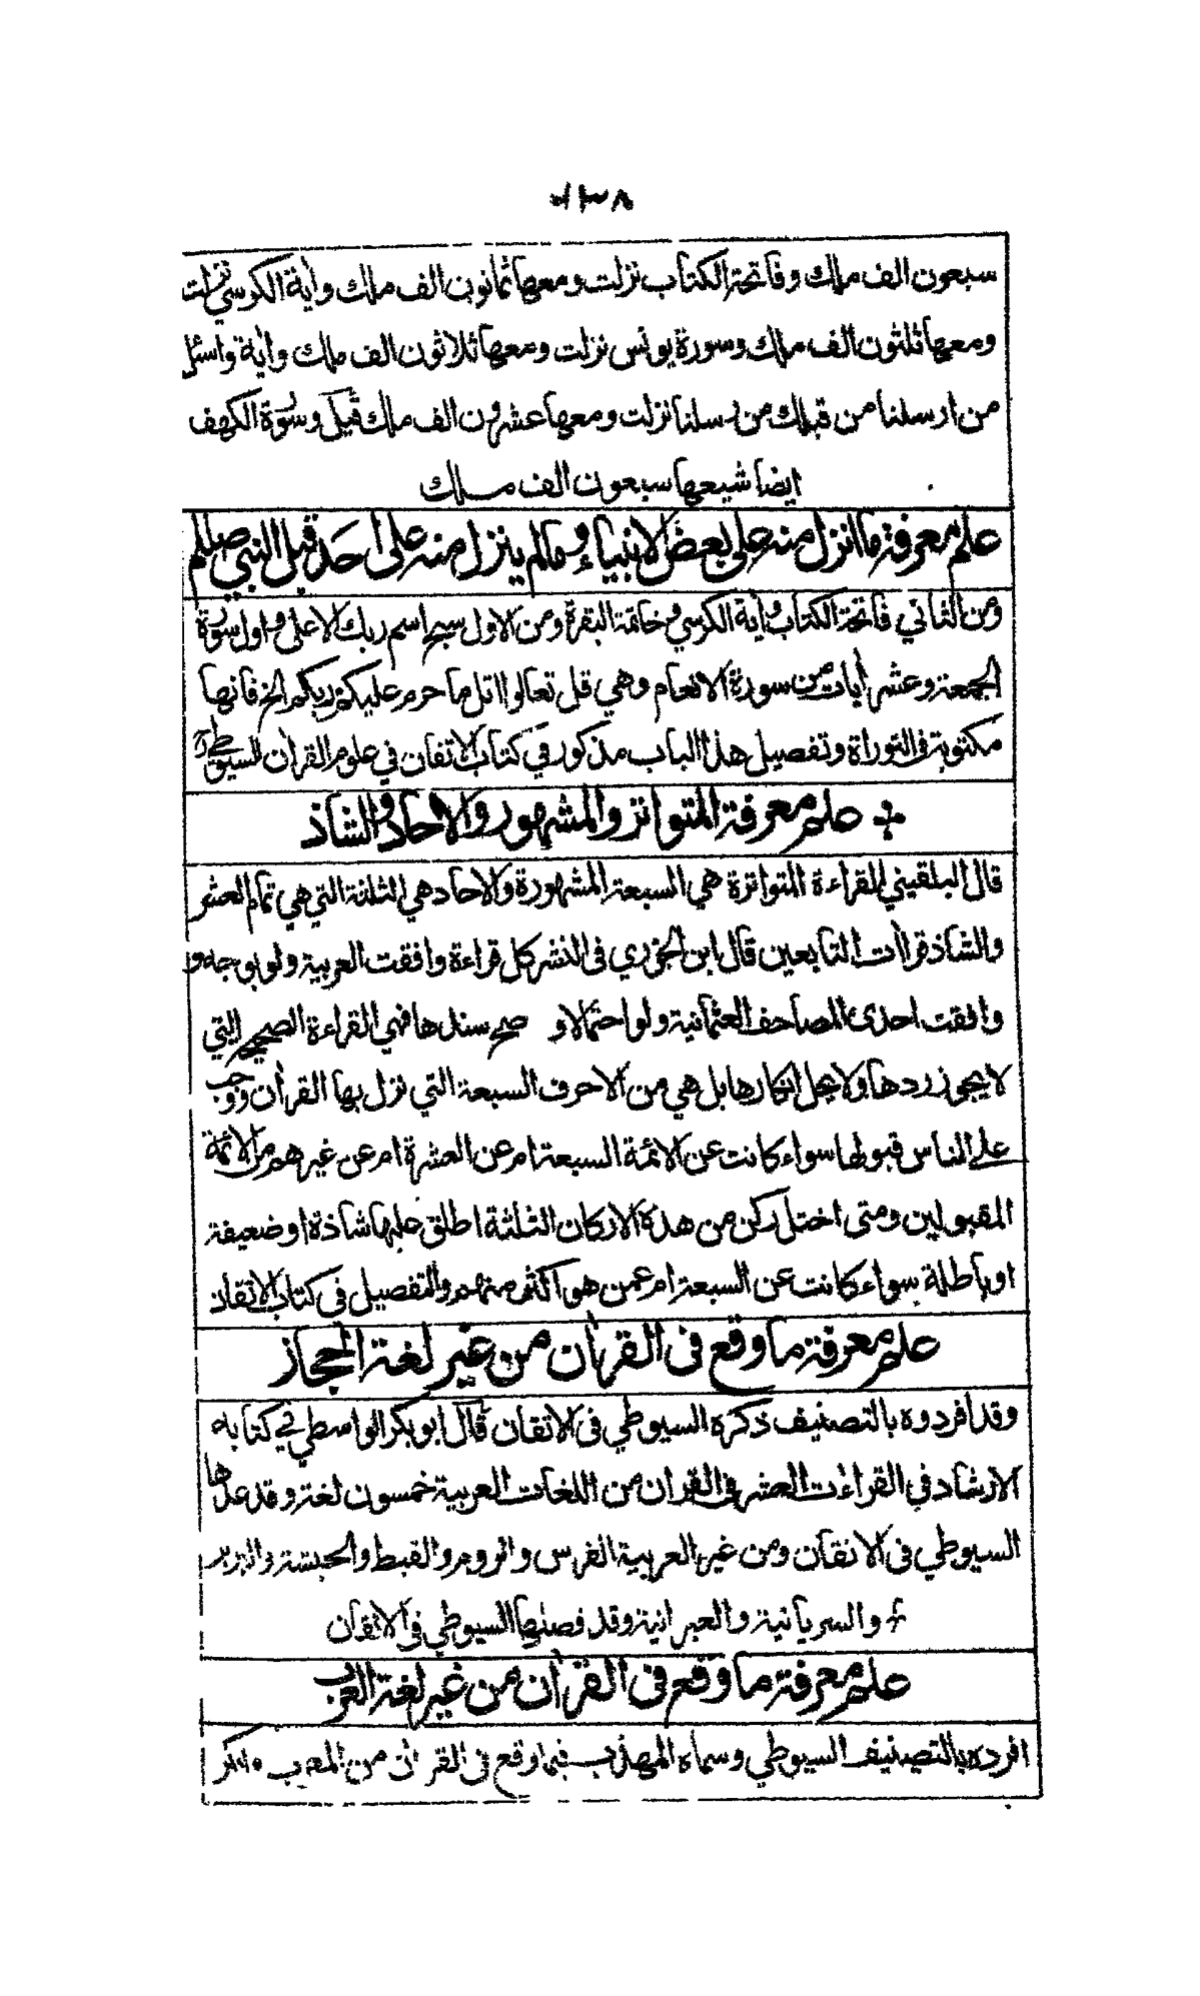 ١٣٨
سبعون الف ملك وفاتحة الكتاب نزلت ومعها ثمانون الف ملك وآية الكرسي نزلت
ومعها ثلثون الف ملك وسورة يونس نزلت ومعها ثلاثون الف ملك وآية واسئل
من ارسلنا من قبلك من رسلنا نزلت ومعها عشرون الف ملك قيل وسورة الكهف
ايضا شيعها سبعون الف ملك
علم معرفة ما انزل منه على بعض الانبياء وما لم ينزل منه على احد قبل النبي صلعم
ومن الثاني فاتحة الكتاب وآية الكرسي وخاتمة البقرة ومن الاول سبح اسم ربك الاعلى واول سورة
الجمعة وعشر آيات من سورة الانعام وهي قل تعالوا اتل ما حرم عليكم ربكم الخ فانها
مكتوبة في التوراة وتفصيل هذا الباب مذكور في كتاب الاتقان في علوم القرآن للسيوطي رح
علم معرفة المتواتر والمشهور والآحاد والشاذ
قال البلقيني القراءة المتواترة هي السبعة المشهورة والآحاد هي الثلثة التي هي تمام العشر
والشاذ قراآت التابعين قال ابن الجزري في النشر كل قراءة وافقت العربية ولو بوجه و
وافقت احدى المصاحف العثمانية ولو احتمالا و صح سندها فهي القراءة الصحيحة التي
لا يجوز ردها ولا يحل انكارها بل هي من الاحرف السبعة التي نزل بها القرآن ووجب
على الناس قبولها سواء كانت عن الائمة السبعة ام عن العشرة ام عن غيرهم من الائمة
المقبولين ومتى اختل ركن من هذه الاركان الثلثة اطلق عليها شاذة او ضعيفة
او باطلة سواء كانت عن السبعة ام عمن هو اكثر منهم والتفصيل في كتاب الاتقان
علم معرفة ما وقع في القرآن من غير لغة الحجاز
وقد افردوه بالتصنيف ذكره السيوطي في الاتقان قال ابو بكر الواسطي في كتابه
الارشاد في القراءات العشر في القرآن من اللغات العربية خمسون لغة وقد عدها
السيوطي في الاتقان ومن غير العربية الفرس والروم والقبط والحبشة والبربر
والسريانية والعبرانية وقد فصلها السيوطي في الاتقان
علم معرفة ما وقع في القرآن من غير لغة العرب
افرده بالتصنيف السيوطي وسماه المهذب فيما وقع في القرآن من المعرب